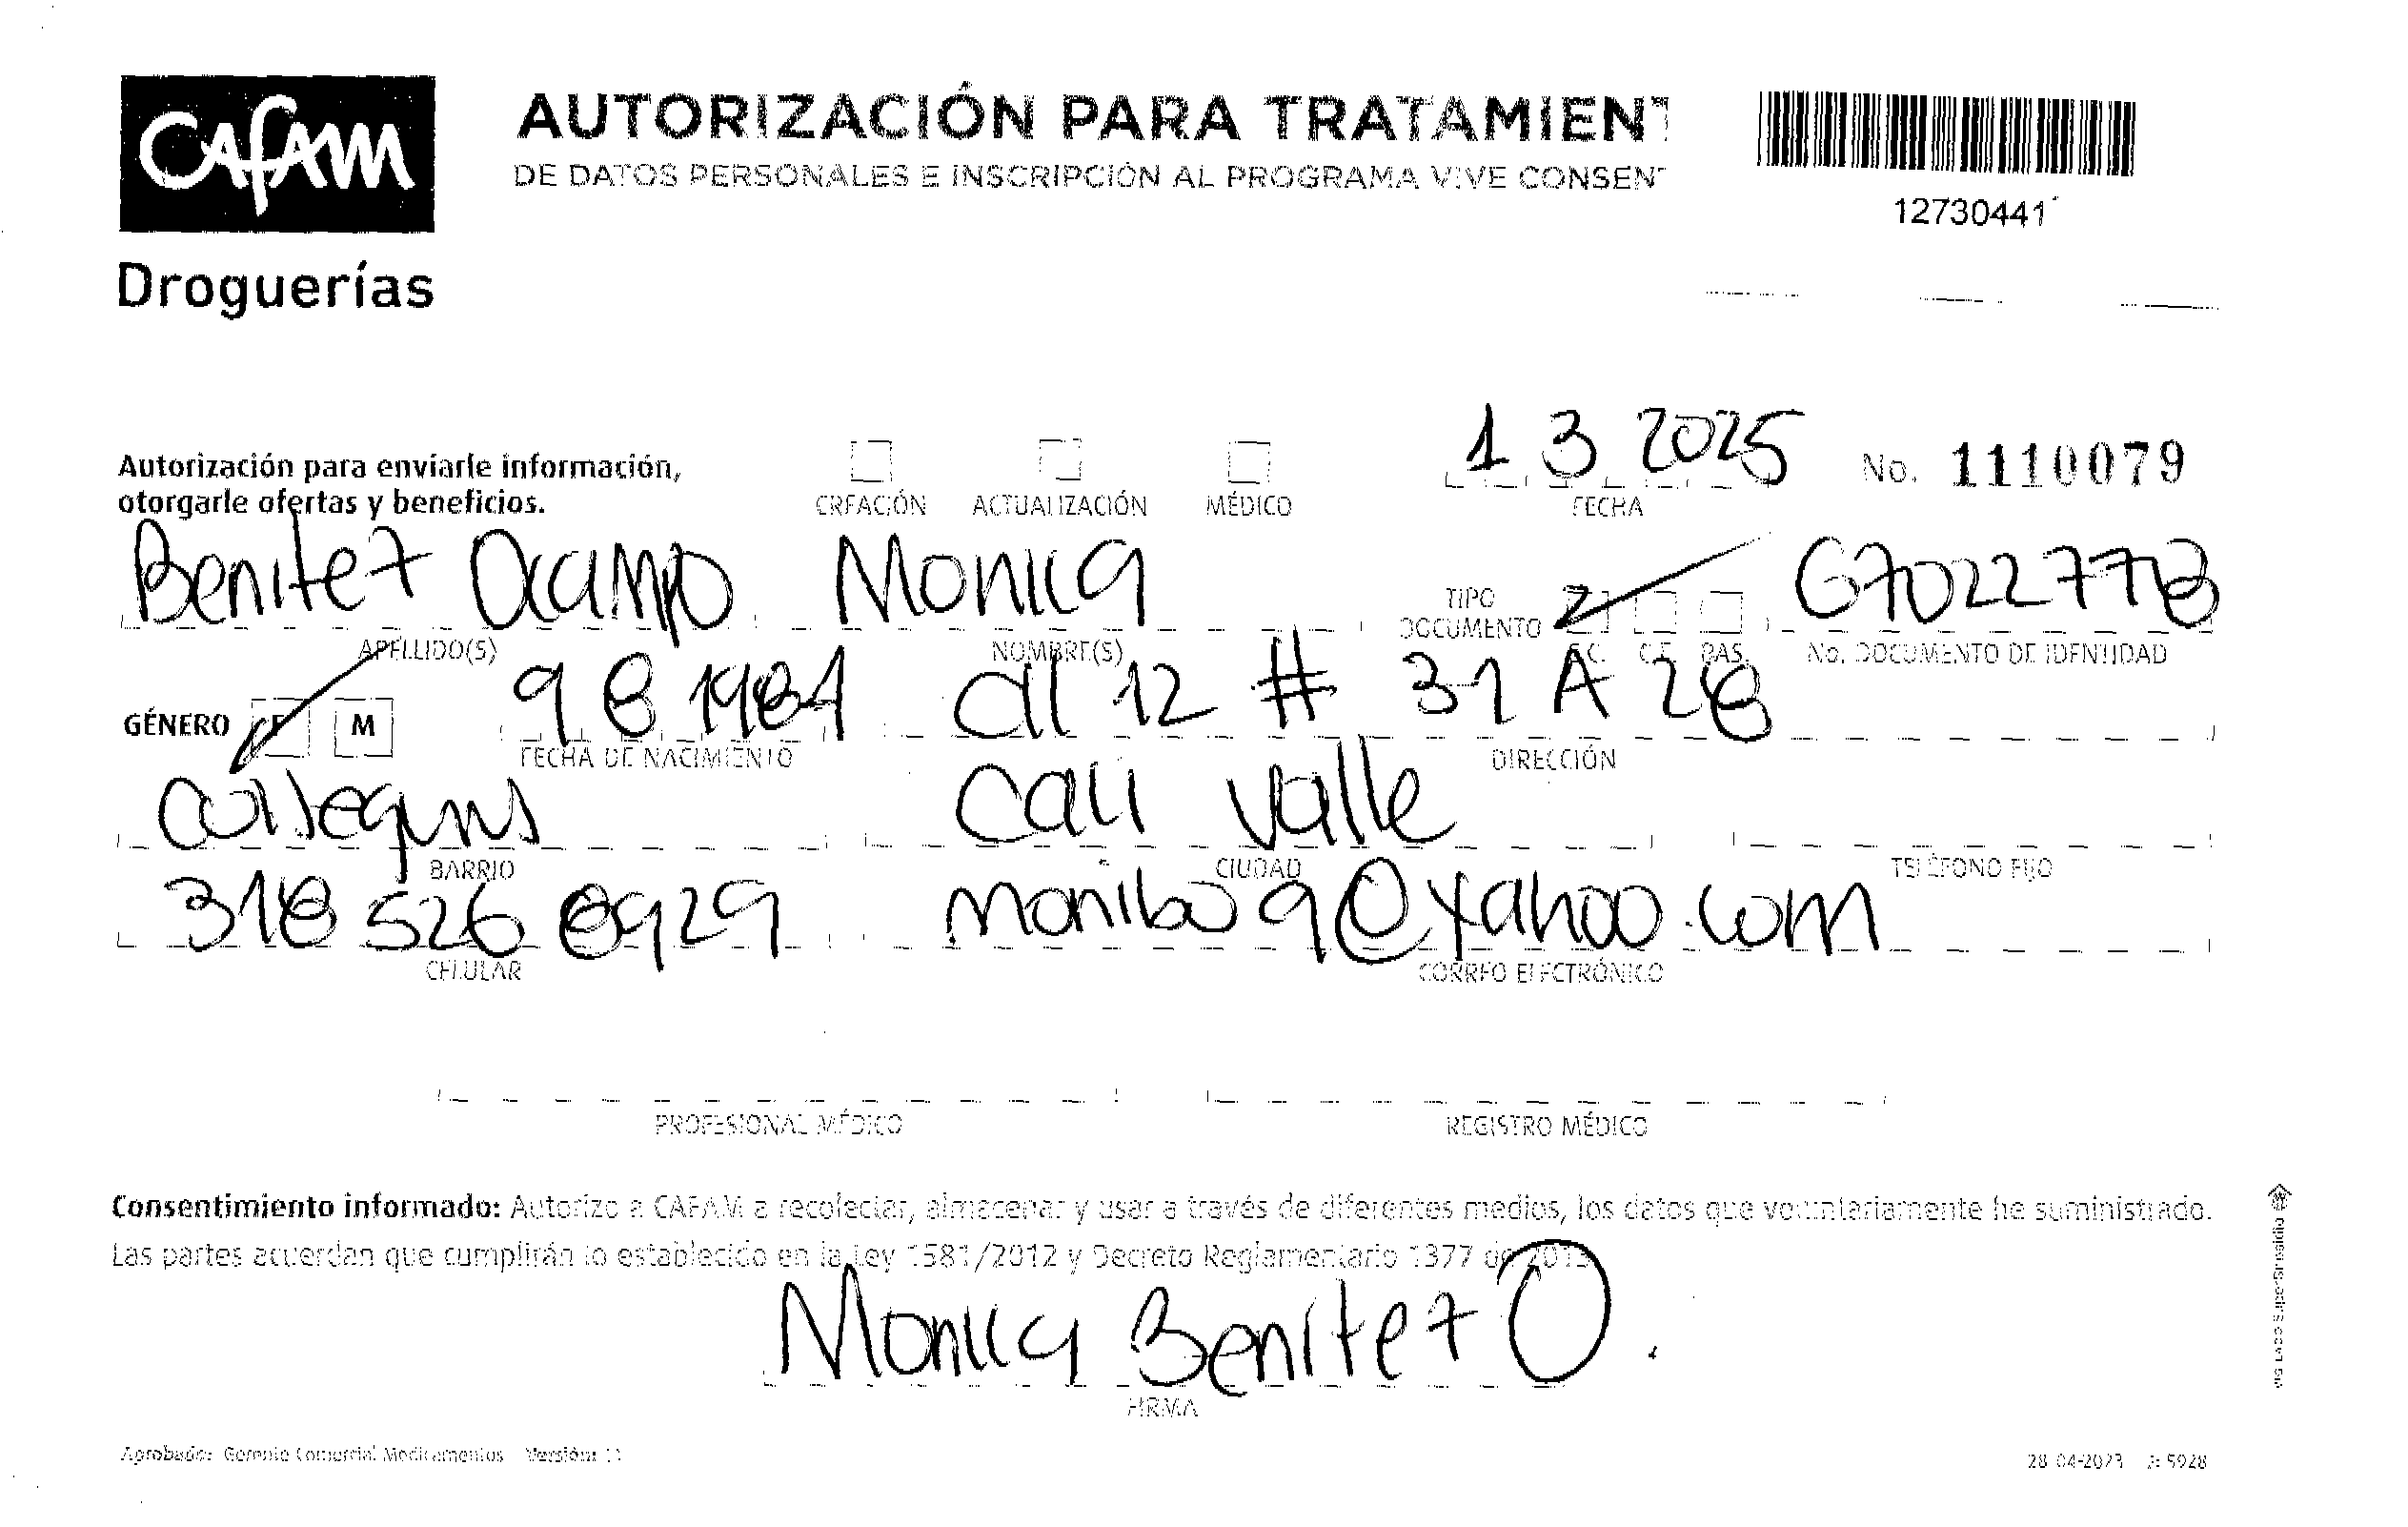 CAFAM
Droguerías
AUTORIZACIÓN PARA TRATAMIENT
DE DATOS PERSONALES E INSCRIPCIÓN AL PROGRAMA VIVE CONSENT
12730441
Autorización para enviarle información,
otorgarle ofertas y beneficios.
CREACIÓN ACTUALIZACIÓN MÉDICO
1 3 2025
FECHA
No. 1110079
Benitez Ocampo Monica 67022778
APELLIDO(S) NOMBRE(S) TIPO DOCUMENTO C.C. C.E. PAS. No. DOCUMENTO DE IDENTIDAD
GÉNERO F M 9 8 1984 Cll 12 # 31 A 28
FECHA DE NACIMIENTO DIRECCIÓN
Colseguros Cali Valle
BARRIO CIUDAD TELÉFONO FIJO
318 526 8929 monibo9@yahoo.com
CELULAR CORREO ELECTRÓNICO
PROFESIONAL MÉDICO REGISTRO MÉDICO
Consentimiento informado: Autorizo a CAFAM a recolectar, almacenar y usar a través de diferentes medios, los datos que voluntariamente he suministrado.
Las partes acuerdan que cumplirán lo establecido en la Ley 1581/2012 y Decreto Reglamentario 1377 de 2013
Monica Benitez O.
FIRMA
Aprobado: Gerente Comercial Medicamentos Versión: 11
28-04-2023